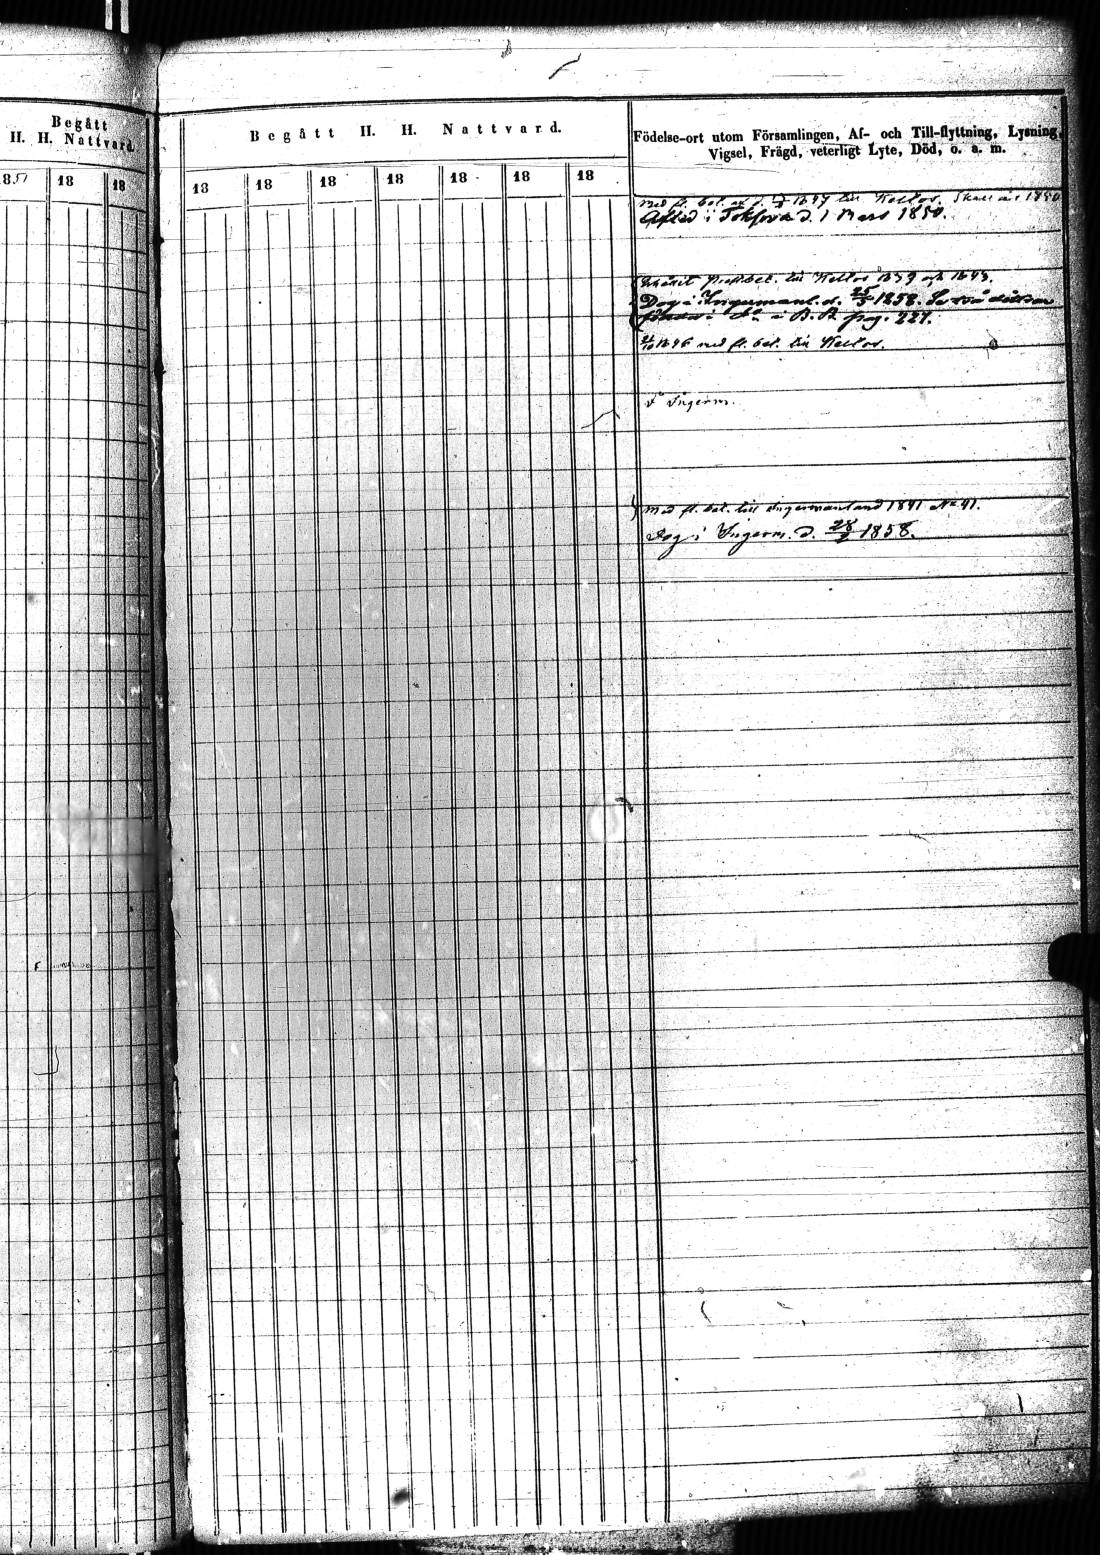 Begått
H. H. Nattvard.
1851 18 18
Begått H. H. Nattvard.
18 18 18 18 18 18 18
Födelse-ort utom Församlingen, Af- och Till-flyttning, Lysning,
Vigsel, Frägd, veterligt Lyte, Död, o. a. m.
med fl. bet. till Keltos. 1850
Afled i Toksova d. 1 Mars 1850.
Erhållit bet. till Keltos 1839 och 1843.
Dog i Ingermanl. d. 25/5 1858. Se
i B. R. pag. 221.
1846 med fl. bet. till Keltos.
i Ingerm.
Med fl. bet. till Ingermanland 1841 No 41.
Dog i Ingerm. d. 1858.